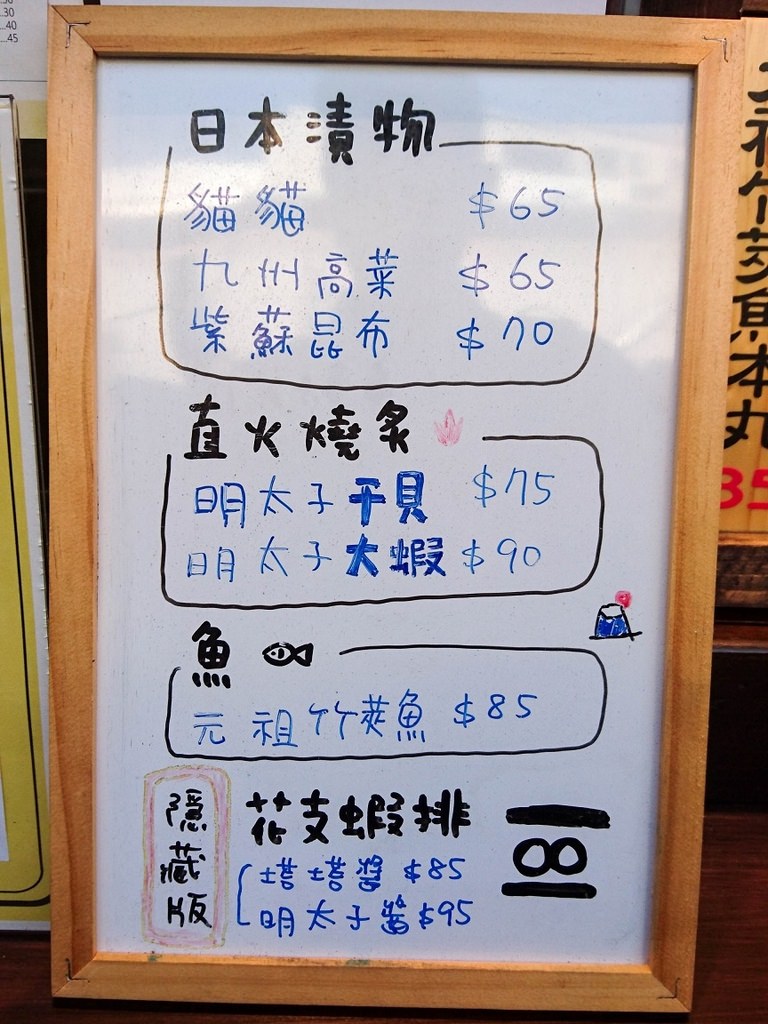 .30
..40
...45
日本漬物
貓貓 $65
九州高菜 $65
紫蘇昆布 $70
直火燒炙
明太子干貝 $75
明太子大蝦 $90
魚
元祖竹莢魚 $85
隱藏版
花支蝦排
塔塔醬 $85
明太子醬 $95
花竹莢魚本丸
85